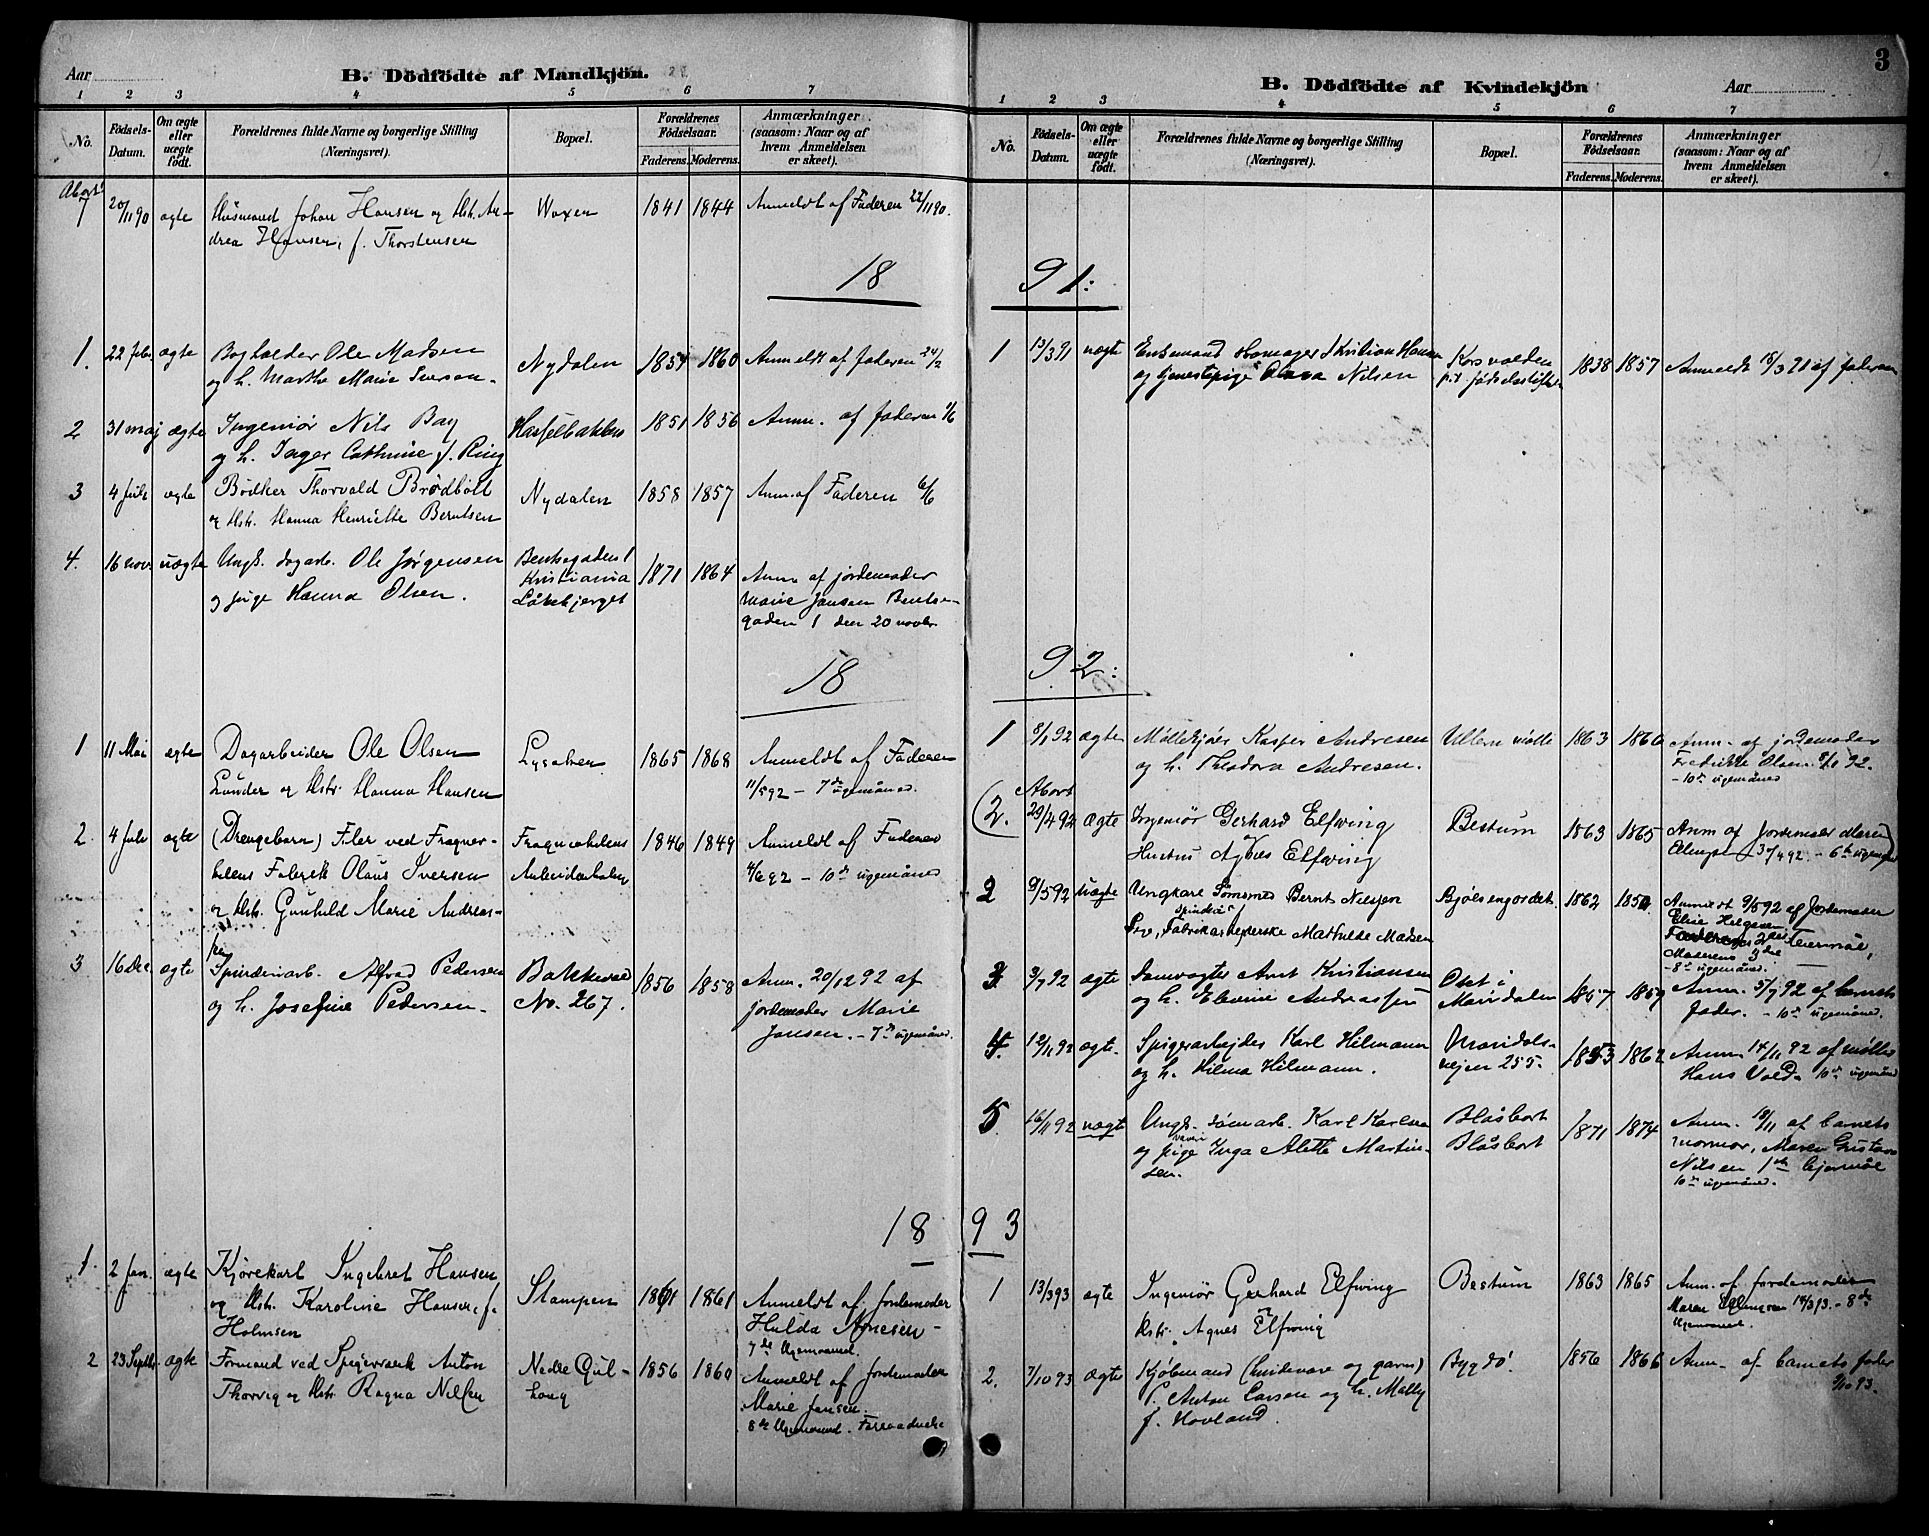 Aar
B. Dödfödte af Mandkjön.
1 2 3 4 5 6 7
No.
Födsels-
Datum.
Om ægte
eller
uægte
födt.
Forældrenes fulde Navne og borgerlige Stilling
(Næringsvei).
Bopæl.
Forældrenes
Födselsaar.
Faderens. Moderens.
Anmærkninger
(saasom: Naar og af
hvem Anmeldelsen
er skeet).
Abort
20/11 90 ægte Husmand Johan Hansen og Hst. An-
drea Hansen, f. Thorstensen
Woxen 1841 1844 Anmeldt af Faderen 22/11 90.
18
1. 22 feb. ægte Bogholder Ole Madsen
og h. Marthe Marie
Nydalen 1860 Anmeldt af faderen 24/2
2 31 maj ægte Ingeniør Nils Bay
og h. Inger Cathrine f. Ring
Hasselbakken 1851 1856 Anm. af faderen 1/6
3 4 ægte Bødker Thorvald Brødbøll
og Hst. Hanna Henriette Berntsen
Nydalen 1858 1857 Anm. af Faderen 6/6
4. 16 nov. uægte Ungk. dagarb. Ole Jørgensen
og pige Hanna Olsen.
Bentsegaden 1
Kristiania
Låkebjerget
1871 1864 Anm af jordemoder
Marie Jansen Bentse-
gaden 1 den 20 novbr.
18
1 11 Mai ægte Dagarbeider Ole Olsen
Lunder og Hst. Hanna Hansen
Lysaker 1865 1868 Anmeldt af Faderen
11/5 92 - 7de ugemåned.
2. 4 ægte (Drengebarn) Filer ved Frogner-
kilens Fabrik Olaus Iversen
og Hst. Gunhild Marie Andreas-
sen
Frognerkilens
Arbeiderbolig
1846 1849 Anmeldt af Faderen
- 10de ugemåned
3 16 Dec. ægte Spinderiarb. Alfred Pedersen
og h. Josefine Pedersen.
Bakkevei
No. 267.
1856 1858 Anm. 20/12 92 af
jordemoder Marie
Jansen. - 7de ugemåned.
18
1. 2 Jan. ægte Kjørekarl Ingebret Hansen
og Hst. Karoline Hansen, f.
Holmsen
Stampen 1861 Anmeldt af Jordemoder
Hulda Arnesen -
7de Ugemaaned.
2 23 Septbr. ægte Formand ved Spigerværk Anton
Thorvig og Hst. Ragna Nilsen
Nedre Gul-
haug
1856 1860 Anmeldt af Jordemoder
Marie Jansen.
8de Ugemaaned. Forraadnelse
3
B. Dödfödte af Kvindekjön
Aar
1 2 3 4 5 6 7
No.
Födsels-
Datum.
Om ægte
eller
uægte
födt.
Forældrenes fulde Navne og borgerlige Stilling
(Næringsvei).
Bopæl.
Forældrenes
Födselsaar.
Faderens. Moderens.
Anmærkninger
(saasom: Naar og af
hvem Anmeldelsen
er skeet).
91:
1 13/3 91 uægte Enkemand skomager Kristian Hansen
og tjenestepige Olava Nilsen
Korsvolden
p.t. fødselsstiftelsen
1838 1857 Anmeldt af faderen
92:
1 8/1 92 ægte Møllekjører Kasper Andresen
og h. Theodora Andresen.
Ullern mølle 1863 1866 Anm. af jordemoder
Fredrikke Olsen
- 10de ugemåned
(2. Abort
29/4 92 ægte Ingeniør Gerhard Elfving
Hustru Agnes Elfving
Bestum 1863 1865 Anm af Jordemoder Maren
30/4 92 - 6te ugemåned)
2 9/5 92 uægte Ungkare Sømsmed Bernt Nilssen
Spinderi
Pige, Fabrikarbejderske Mathilde Madsen
Bjølsengordet. 1862 Anmeldt 9/5 92 af Jordemoder
Elise Helgesen
Faderens 2det Leiermål,
Moderens 3die
- 8de ugemåned.
3 3/7 92 ægte Damvogter Arnt Kristiansen
og h. Elevine Andreassen
Oset i
Maridalen
1857 Anm. 5/7 92 af barnets
fader. - 10de ugemåned.
4. 12/11 92 ægte. Spigerarbejder Karl Hilmann
og h. Hilma Hilmann.
Maridals-
vejen 255.
1853 1862 Anm. 14/11 92 af møller
Hans Vold. 10de ugemåned
5 16/11 92 uægte Ungk. sømarb. Karl Karlsen
væveri
og pige Inga Alette Martin-
sen.
Blåsbort
Blåsbort
1871 1874 Anm. 18/11 af barnets
mormor, Maren Gustava
Nilsen 1ste lejermål
10de ugemåned.
93
1 13/3 93 ægte Ingeniør Gerhard Elfving
Hstr. Agnes Elfving
Bestum 1863 1865 Anm. af Jordemoder
Maren 14/3 93. - 8de
Ugemaaned.
2. 7/10 93 ægte Kjøbmand (hvidevare og garn)
P. Anton Larsen og h. Mally
f. Hovland.
Bygdø 1856 1866 Anm. af barnets fader
9/10 93.